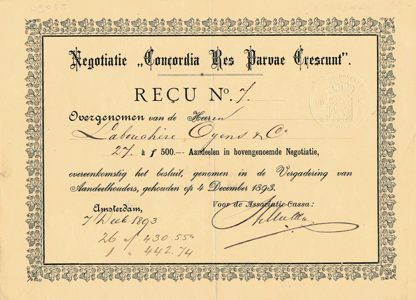 Negotiatie „Concordia Res Parvae Crescunt".
REÇU Nº. 7.
Overgenomen van de Heeren
Labouchere Oyens & Co
27. à ƒ 500.— Aandeelen in bovengenoemde Negotiatie,
overeenkomstig het besluit, genomen in de Vergadering van
Aandeelhouders, gehouden op 4 December 1893.
Amsterdam,
Voor de Associatie-Cassa:
7 Decb 1893
26 of 430.55
1 " 442.74